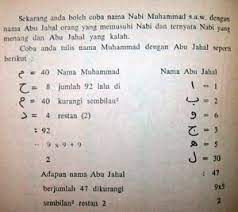 Sekarang anda boleh coba nama Nabi Muhammad s.a.w. dengan
nama Abu Jahal orang yang memusuhi Nabi dan ternyata Nabi yang
menang dan Abu Jahal yang kalah.
Coba anda tulis nama Muhammad dengan Abu Jahal seperti
berikut :
م = 40 Nama Muhammad Nama Abu Jahal
ح = 8 jumlah 92 lalu di ا = 1
م = 40 kurangi sembilan² ب = 2
د = 4 restan (2) و = 6
: 92 ج = 3
9 x 9 + 9 ه = 5
2 ل = 30
Adapun nama Abu Jahal : 47
berjumlah 47 dikurangi 9x5
sembilan² restan 2 2